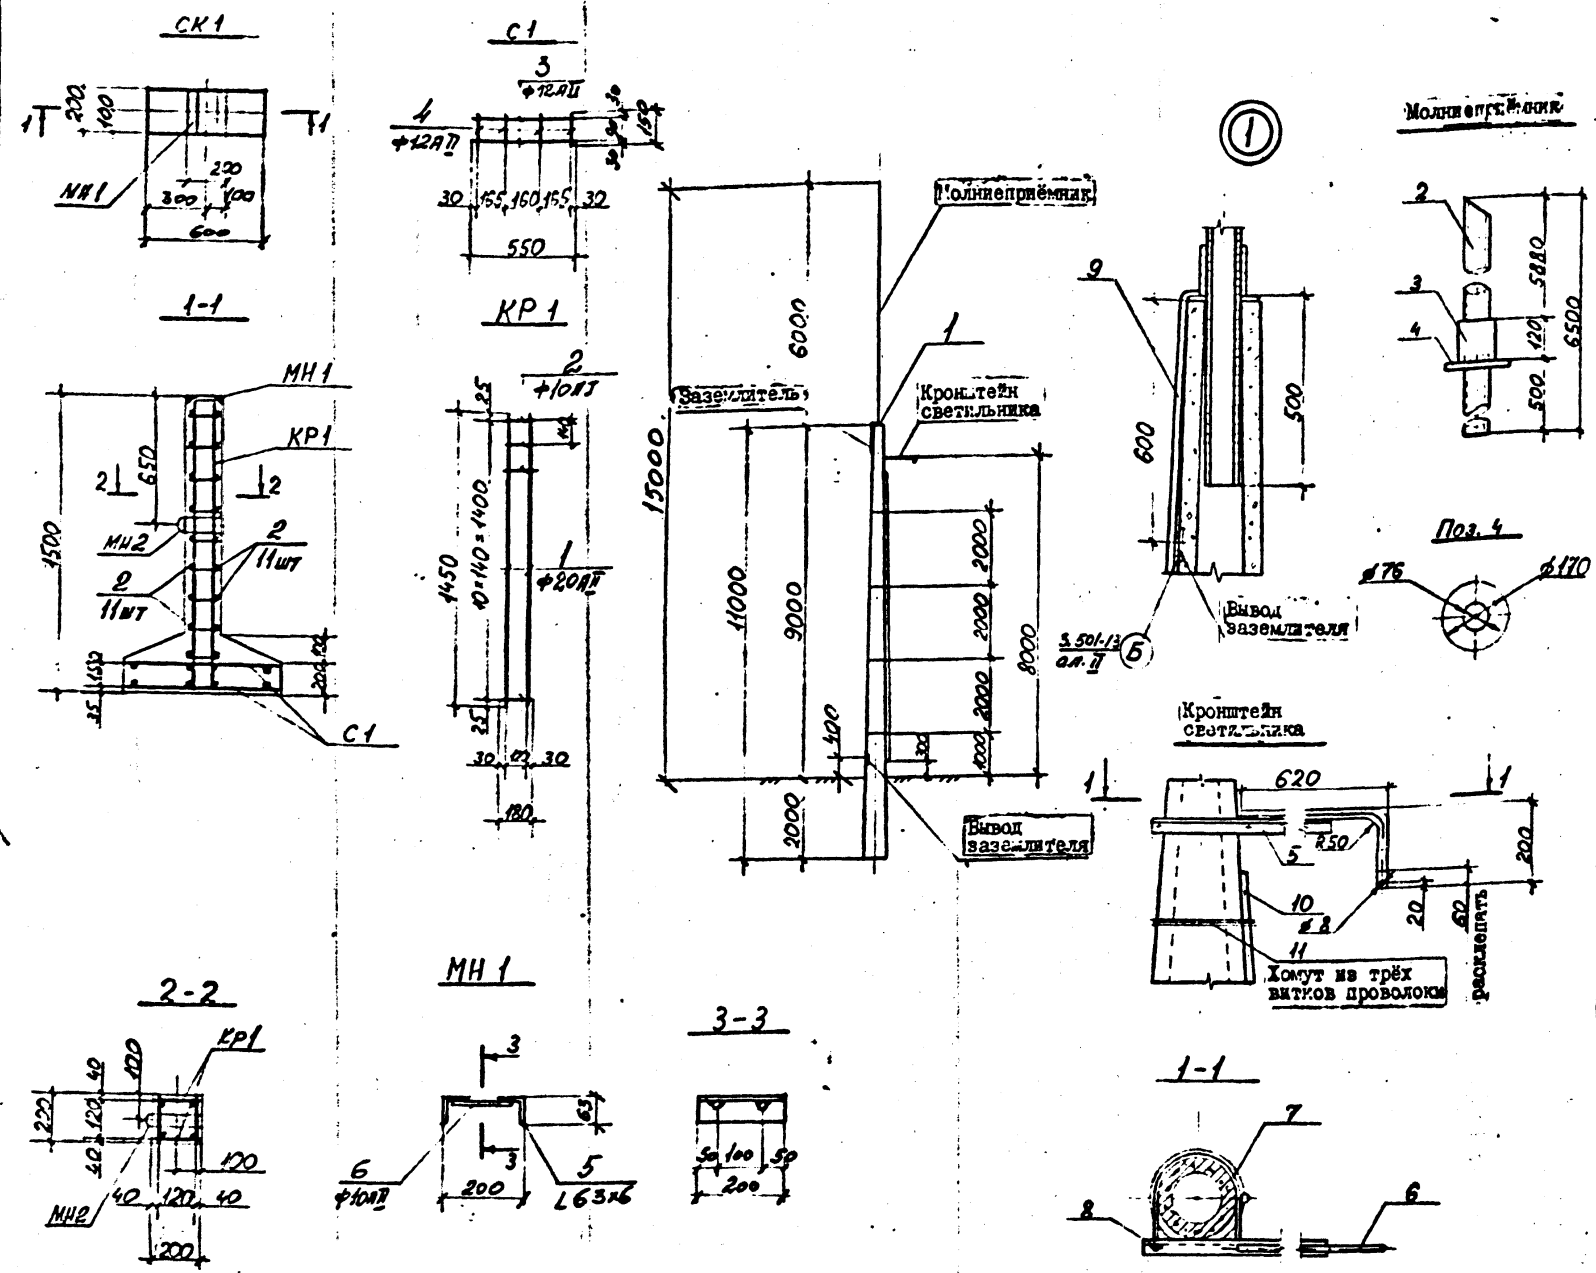 СК 1
200
100
1
1
МН1
200
300
100
600
С 1
3
ф12АII
4
ф12АII
30
90
30
150
30
165
160
165
30
550
1-1
МН 1
КР 1
650
2
2
1500
МН2
2
11шт
2
11шт
200
35
С 1
КР 1
2
25
1450
10×140=1400
1
ф20АII
25
30
30
180
Молниеприёмник
6000
1
Заземлитель
Кронштейн
светильника
15000
11000
9000
2000
2000
2000
1000
8000
400
300
2000
Вывод
заземлителя
1
9
600
500
Вывод
заземлителя
3.501-13
ал. II
Б
Молниеприёмник
2
3
4
5880
120
500
6500
Поз. 4
ø76
ø170
Кронштейн
светильника
1
620
1
5
R50
200
10
ø 8
20
60
расклепать
11
Хомут из трёх
витков проволоки
2-2
КР1
100
40
120
40
200
100
40
120
40
МН2
200
МН 1
3
3
63
6
ф10АII
200
5
L63×6
3-3
50
100
50
200
1-1
7
8
6